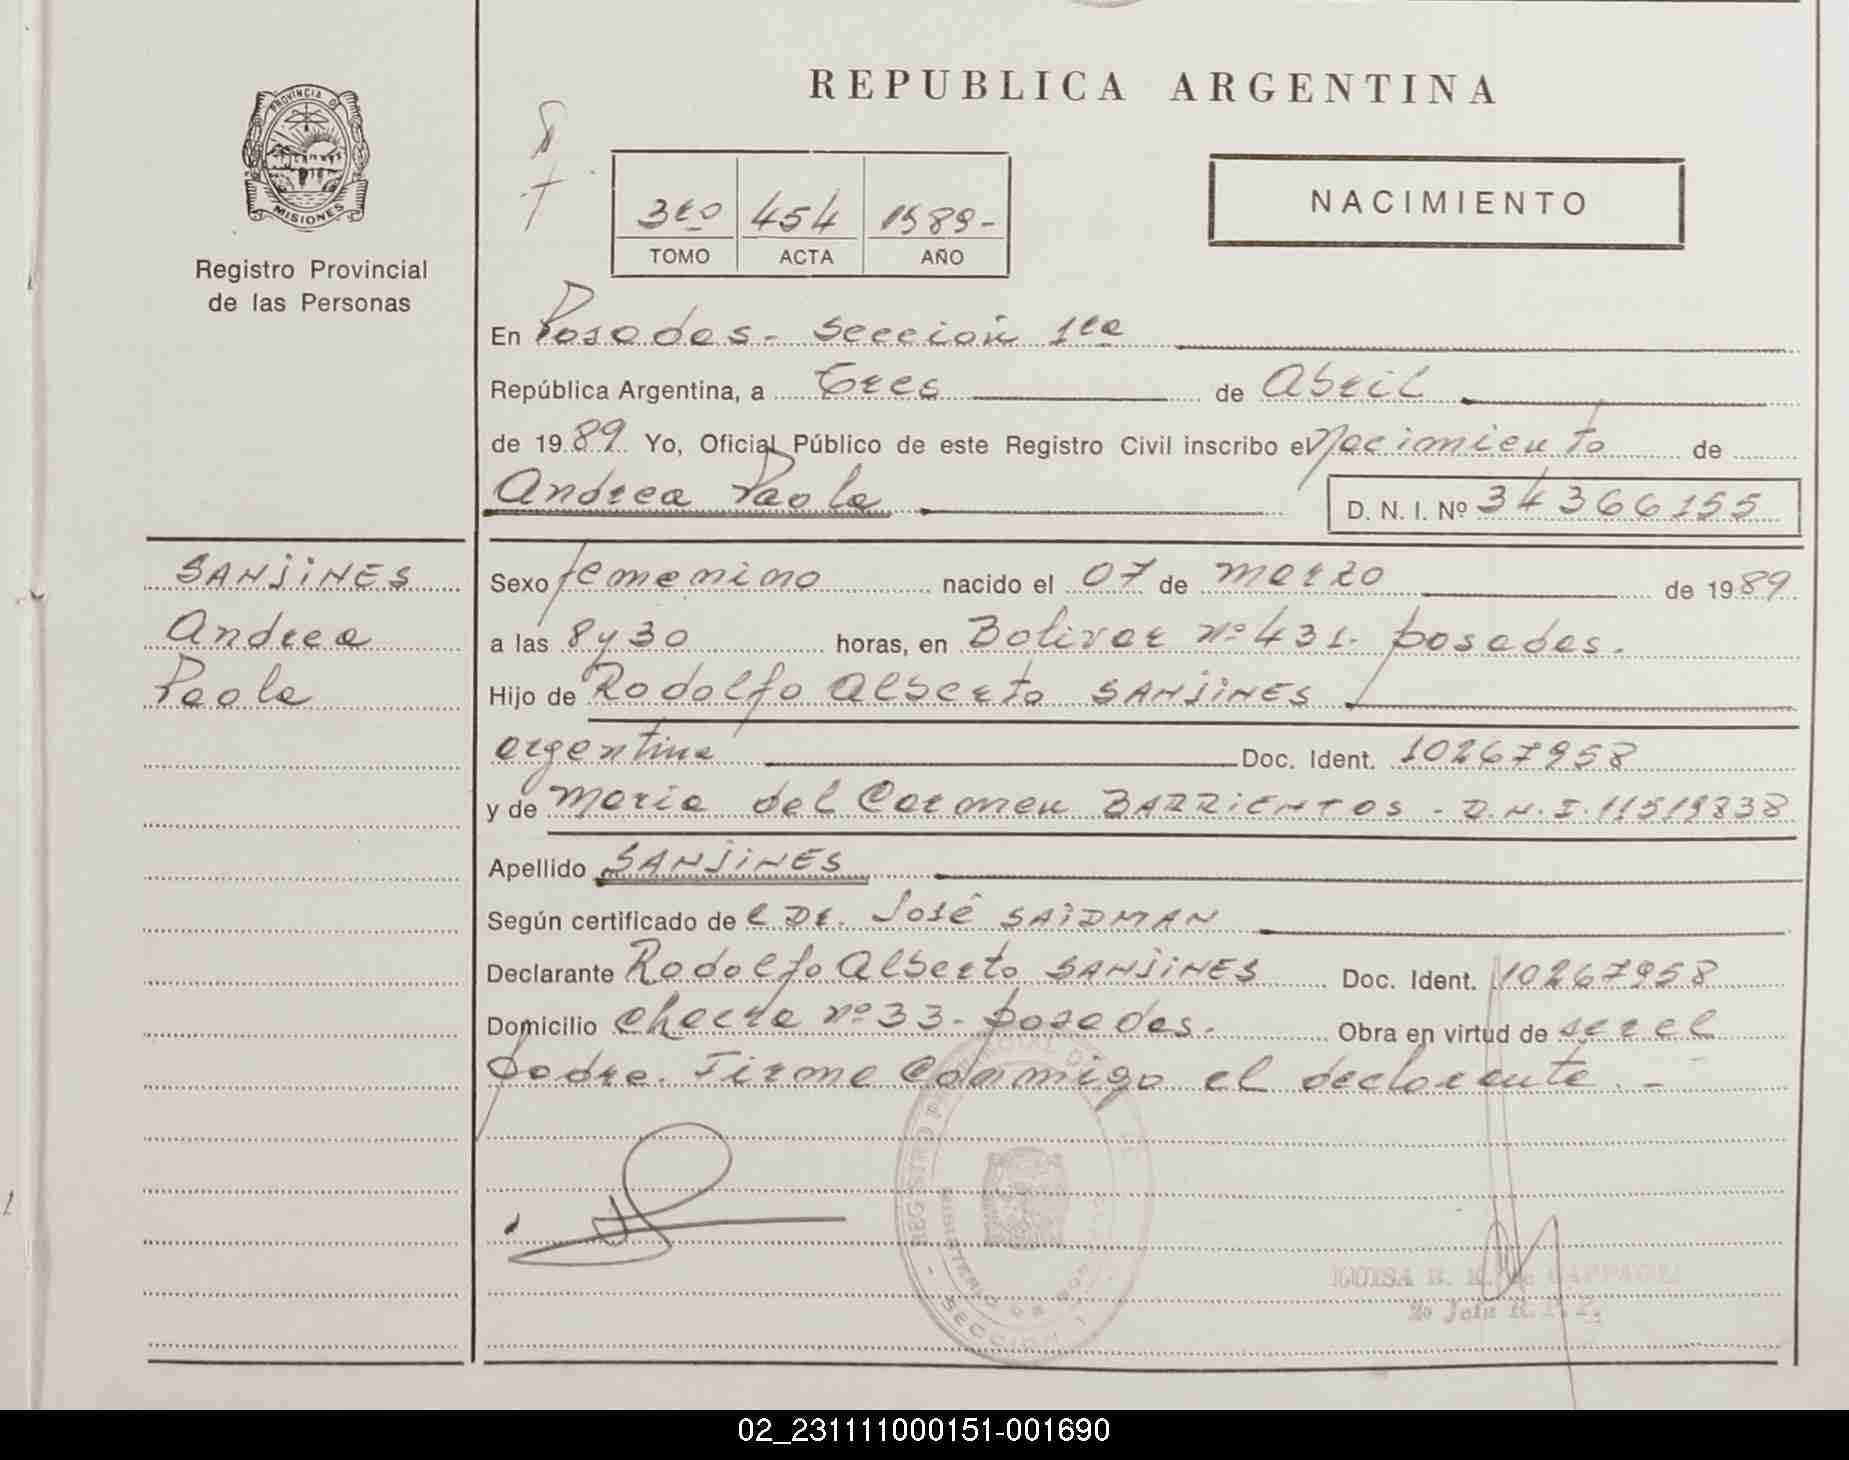 PROVINCIA DE
MISIONES
Registro Provincial
de las Personas
REPUBLICA ARGENTINA
3ro 454 1989-
TOMO ACTA AÑO
NACIMIENTO
En Posadas - Sección 1ra
República Argentina, a Tres de Abril
de 1989 Yo, Oficial Público de este Registro Civil inscribo el Nacimiento de
Andrea Paola D. N. I. Nº 34366155
SANJINES
Andrea
Paola
Sexo femenino nacido el 07 de marzo de 1989
a las 8 y 30 horas, en Bolivar nº 431. posadas.
Hijo de Rodolfo Alberto SANJINES
argentina Doc. Ident. 10267958
y de Maria del Carmen BARRIENTOS - D.N.I. 11519838
Apellido SANJINES
Según certificado de l Dr. José SAIDMAN
Declarante Rodolfo Alberto SANJINES Doc. Ident. 10267958
Domicilio Chacra nº 33 - posadas. Obra en virtud de ser el
padre. Firma conmigo el declarante. -
REGISTRO PROVINCIAL DE
MINISTERIO DE GOB
- SECCION 1
LUISA
2º Jefe R. P. P.
02_231111000151-001690